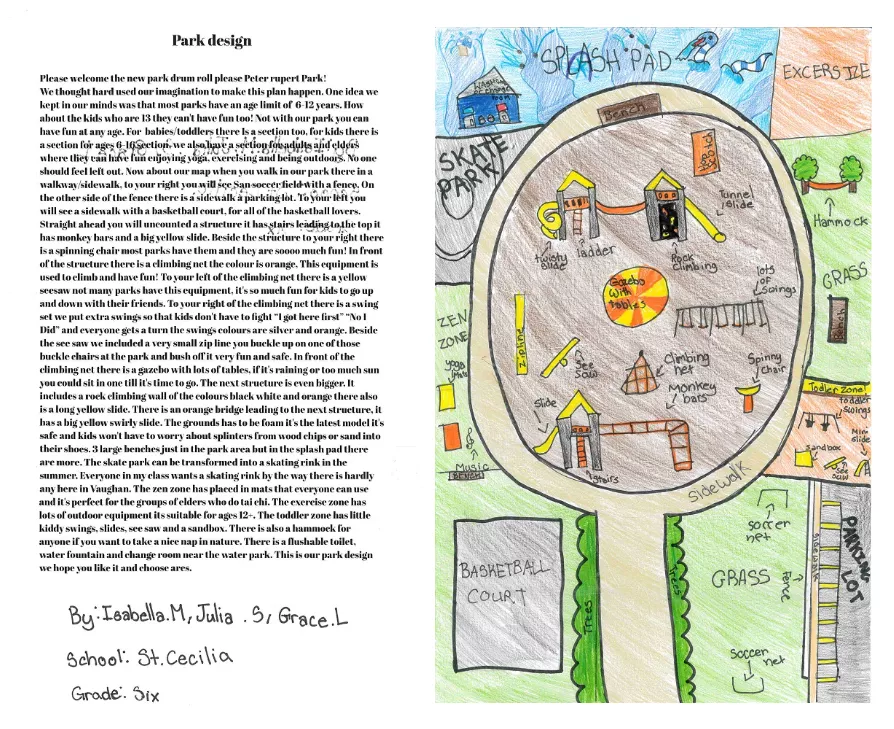 Park design
Please welcome the new park drum roll please Peter rupert Park!
We thought hard used our imagination to make this plan happen. One idea we
kept in our minds was that most parks have an age limit of 6-12 years. How
about the kids who are 13 they can't have fun too! Not with our park you can
have fun at any age. For babies/toddlers there is a section too, for kids there is
a section for ages 6-16 section, we also have a section for adults and elders
where they can have fun enjoying yoga, exercising and being outdoors. No one
should feel left out. Now about our map when you walk in our park there in a
walkway/sidewalk, to your right you will see San soccer field with a fence. On
the other side of the fence there is a sidewalk a parking lot. To your left you
will see a sidewalk with a basketball court, for all of the basketball lovers.
Straight ahead you will uncounted a structure it has stairs leading to the top it
has monkey bars and a big yellow slide. Beside the structure to your right there
is a spinning chair most parks have them and they are soooo much fun! In front
of the structure there is a climbing net the colour is orange. This equipment is
used to climb and have fun! To your left of the climbing net there is a yellow
seesaw not many parks have this equipment, it's so much fun for kids to go up
and down with their friends. To your right of the climbing net there is a swing
set we put extra swings so that kids don't have to fight "I got here first" "No I
Did" and everyone gets a turn the swings colours are silver and orange. Beside
the see saw we included a very small zip line you buckle up on one of those
buckle chairs at the park and bush off it very fun and safe. In front of the
climbing net there is a gazebo with lots of tables, if it's raining or too much sun
you could sit in one till it's time to go. The next structure is even bigger. It
includes a rock climbing wall of the colours black white and orange there also
is a long yellow slide. There is an orange bridge leading to the next structure, it
has a big yellow swirly slide. The grounds has to be foam it's the latest model it's
safe and kids won't have to worry about splinters from wood chips or sand into
their shoes. 3 large benches just in the park area but in the splash pad there
are more. The skate park can be transformed into a skating rink in the
summer. Everyone in my class wants a skating rink by the way there is hardly
any here in Vaughan. The zen zone has placed in mats that everyone can use
and it's perfect for the groups of elders who do tai chi. The exercise zone has
lots of outdoor equipment it is suitable for ages 12+. The toddler zone has little
kiddy swings, slides, see saw and a sandbox. There is also a hammock for
anyone if you want to take a nice nap in nature. There is a flushable toilet,
water fountain and change room near the water park. This is our park design
we hope you like it and choose ares.
By: Isabella.M, Julia .S, Grace.L
School: St.Cecilia
Grade: Six
SPLASH PAD
EXCERSIZE
Bench
SKATE
PARK
Hop
Scotch
Tunnel
Slide
Hammock
twisty
slide
ladder
Rock
climbing
Gazebo
with
tables
lots
of
swings
GRASS
ZEN
ZONE
Zipline
yoga
mats
See
Saw
Climbing
net
Monkey
bars
Spinny
chair
Todler Zone!
toddler
swings
Mini
slide
sandbox
See
saw
Slide
stairs
Music
Sidewalk
soccer
net
BASKETBALL
COURT
Trees
Trees
GRASS
Fence
SIDEWALK
PARKING
LOT
soccer
net